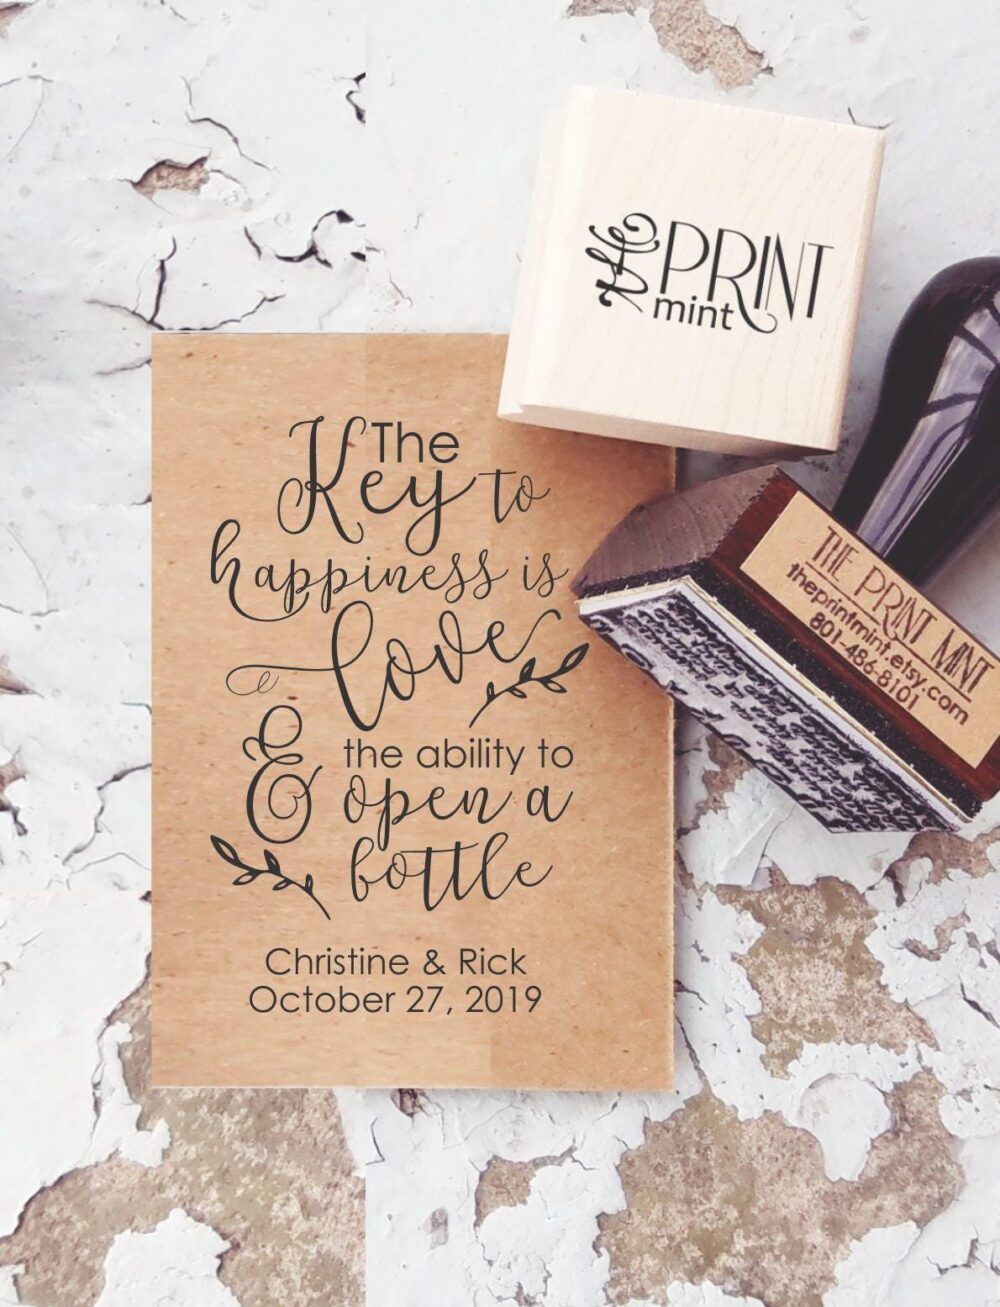 The
Key to
happiness is
love
& the ability to
open a
bottle
Christine & Rick
October 27, 2019
the PRINT
mint
THE PRINT MINT
theprintmint.etsy.com
801-486-8101